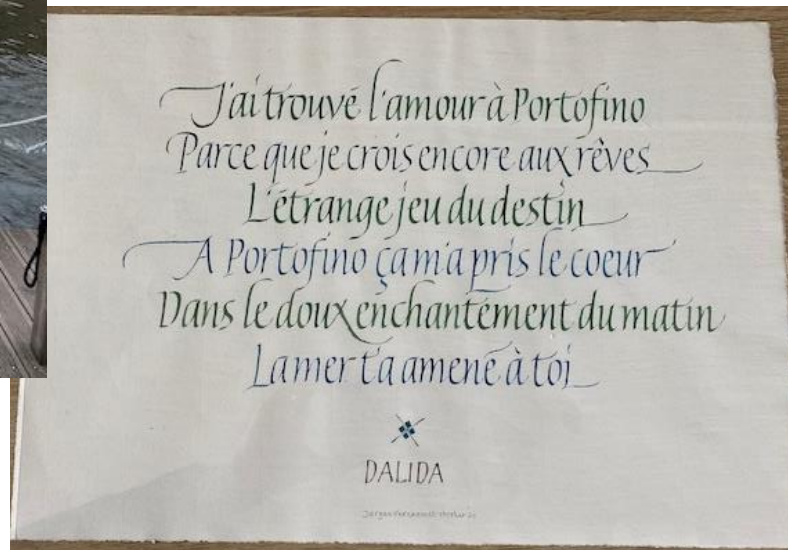 J'ai trouvé l'amour à Portofino
Parce que je crois encore aux rêves
L'étrange jeu du destin
A Portofino ça m'a pris le coeur
Dans le doux enchantement du matin
La mer t'a amené à toi
DALIDA